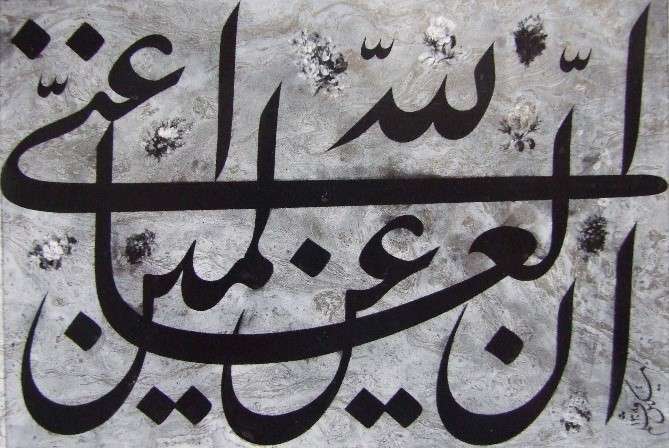 انّ اللّٰه غنیّ عن العالمین